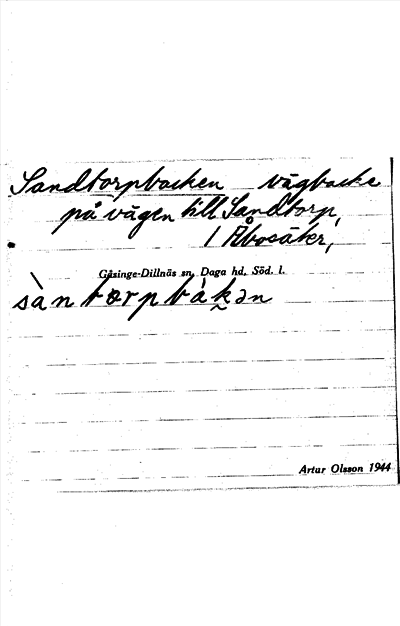 Sandtorpbacken vägbacke
på vägen till Sandtorp,
1 Åbosäker,
Gåsinge-Dillnäs sn, Daga hd, Söd. l.
sàn tɵrpbàk̬ən
Artur Olsson 1944